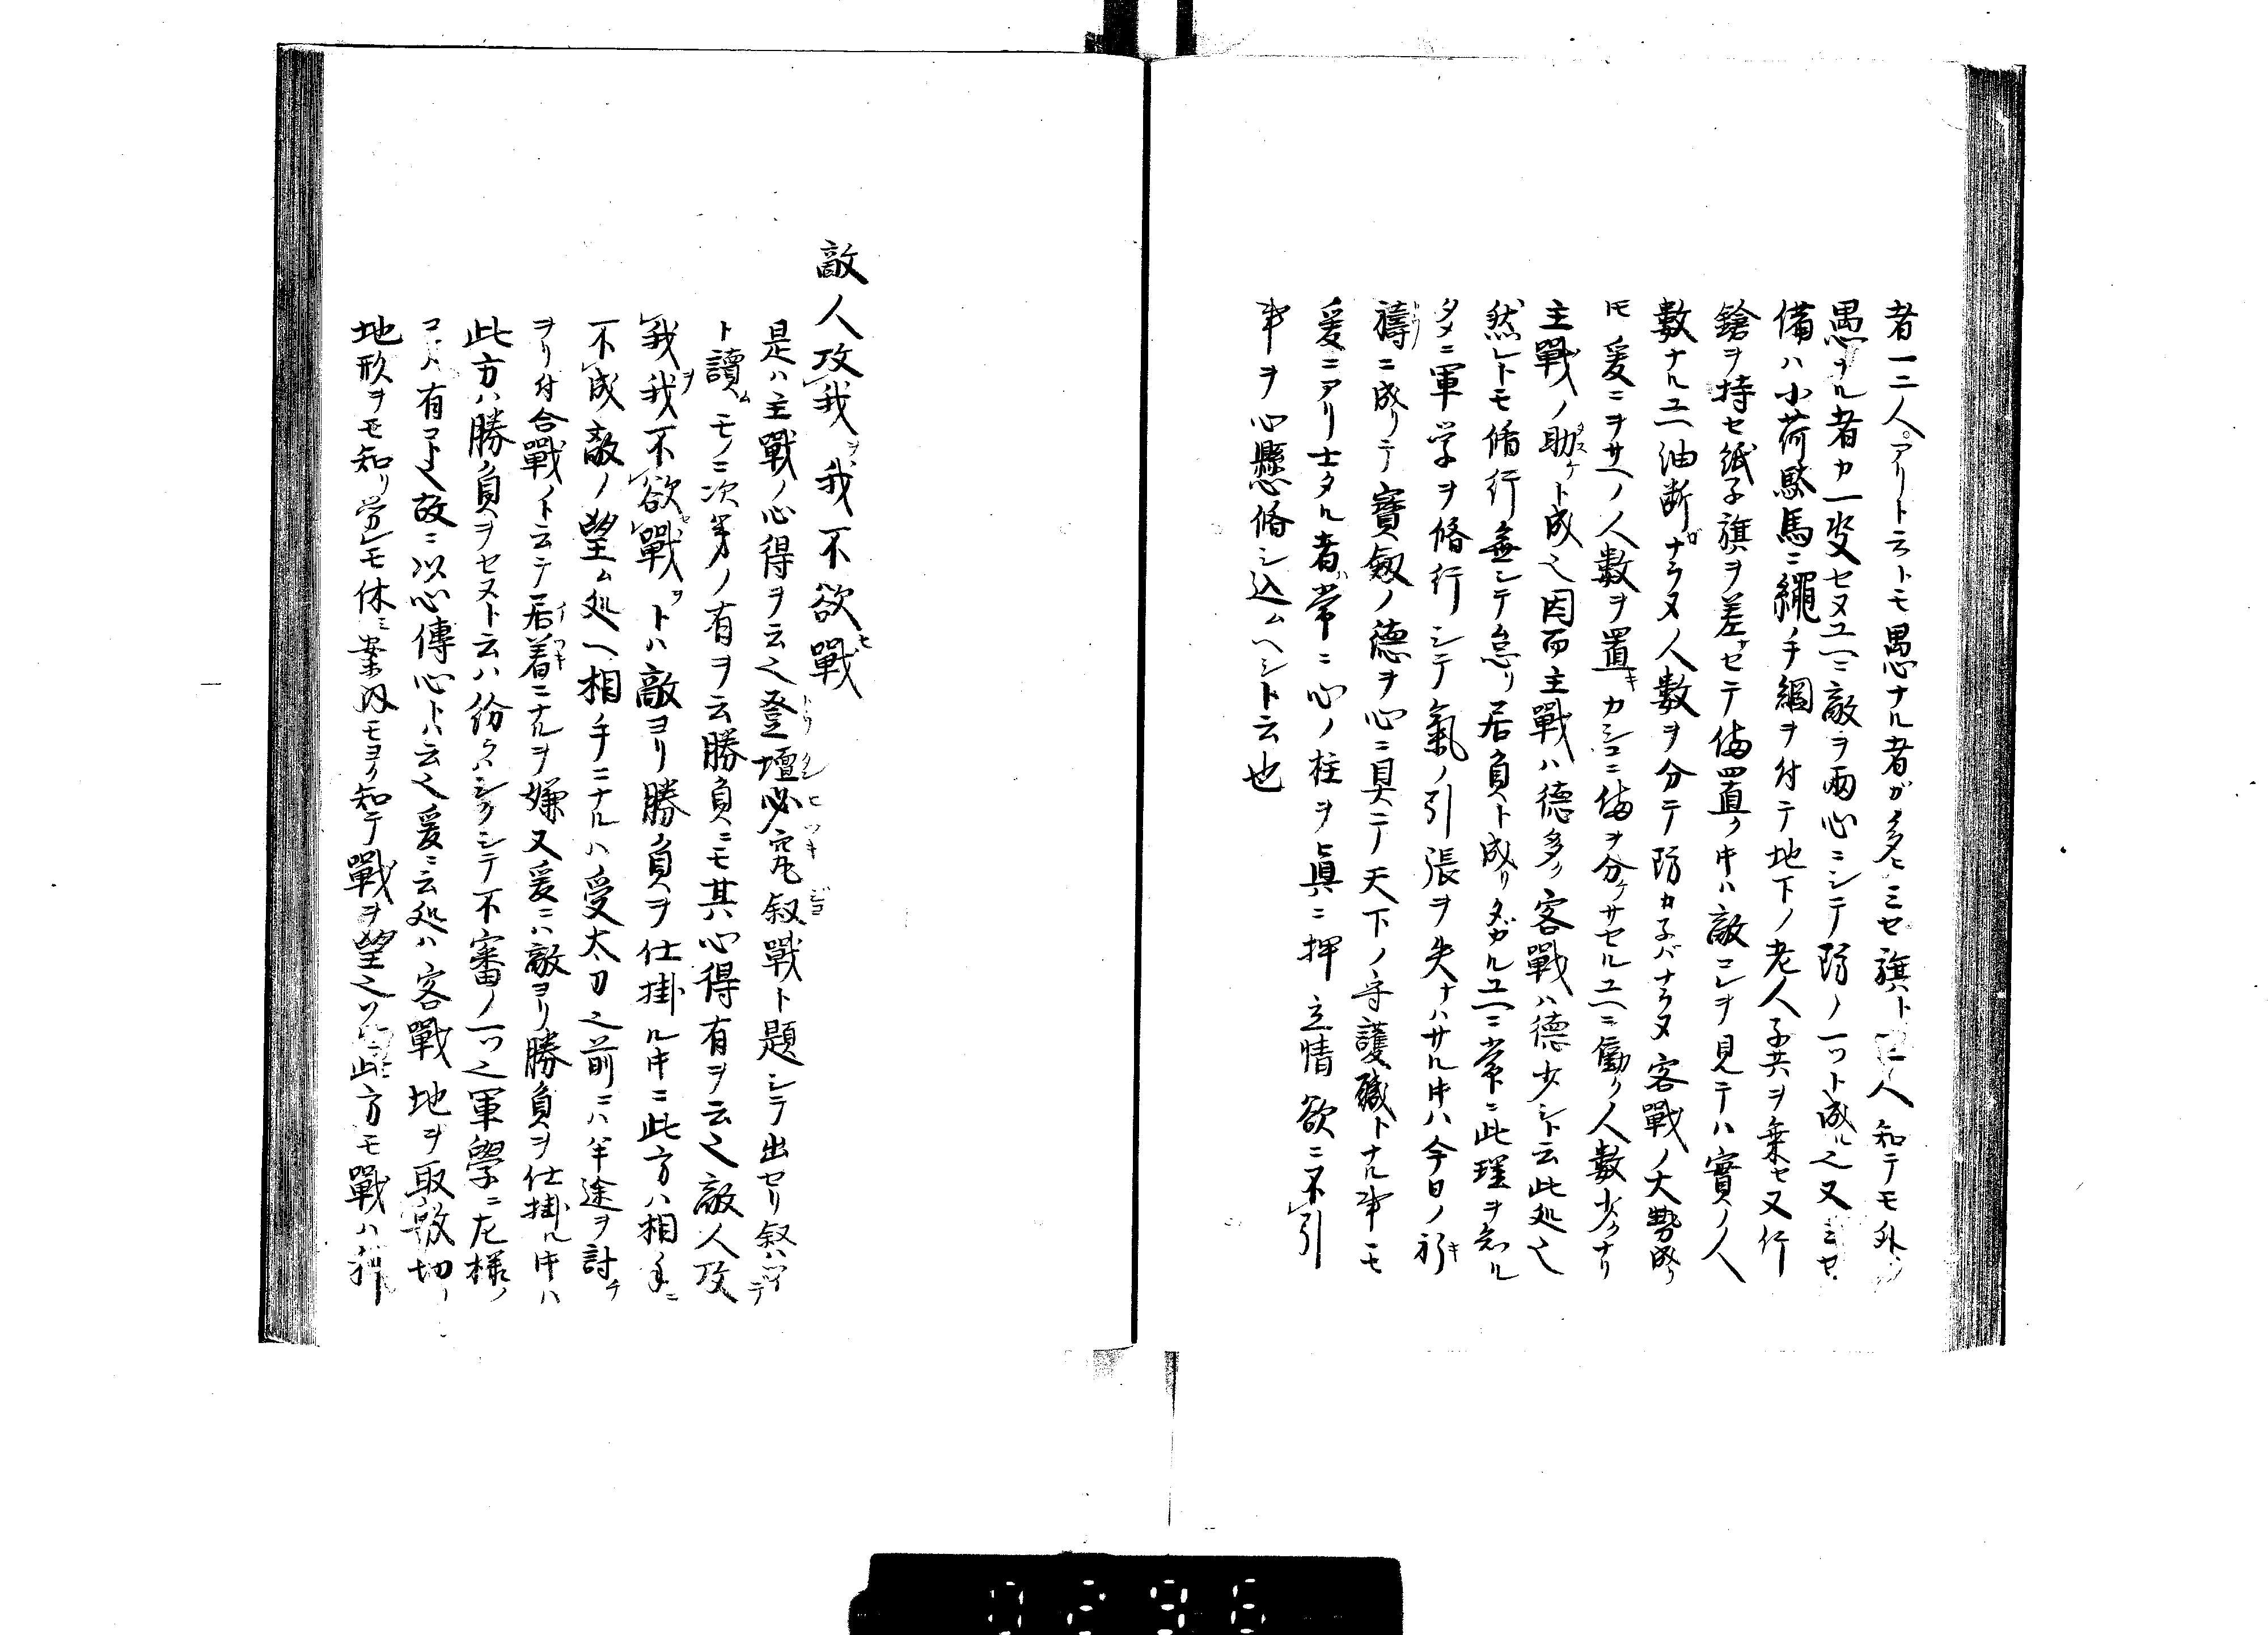 者一二人アリト云トモ愚ナル者ガ多ニミセ旗ト一二人和テモ外
愚ナル者カ一変セヌユヘニ敵ヲ両心ニシテ防ノ一ツト成ル之又ミセ
備ハ小荷駄馬ニ縄ノ手綱ヲ付テ地下ノ老人子共ヲ乗セ又行
鎗ヲ持セ紙子旗ヲ差セテ備置ク时ハ敵コレヲ見テハ實ノ人
數ナルユヘ油断ナラヌ人數ヲ分テ防カ子バナラヌ客戰ノ大勢成
トモ爰ニヲサヘノ人數ヲ置キカシコニ備ヲ分ケサセルユヘニ働ク人數少クナリ
主戰ノ助ケト成之因而主戰ハ德多ク客戰ハ德少シト云此処之
然レトモ脩行無シテ怠リ居負ト成リタガルユヘニ常ニ此理ヲ知ル
タメニ軍学ヲ脩行シテ氣ノ引張ヲ失ナハサル时ハ今日ノ祈キ
禱ニ成リテ寶劔ノ德ヲ心ニ具テ天下ノ守護職トナル事モ
爰ニアリ士タル者ハ常ニ心ノ柱ヲ眞ニ押立情欲ニ不引
事ヲ心懸脩シ込ムヘシト云也
敵人攻我ヲ我不欲戰セ
是ハ主戰ノ心得ヲ云之登壇必究叙戰ト題シテ出セリ叙ハツイテ
ト讀ムモノニ次第ノ有ヲ云勝負ニモ其心得有ヲ云之敵人攻
我ヲ我不欲戰ヲトハ敵ヨリ勝負ヲ仕掛ル时ニ此方ハ相手ニ
不成敵ノ望ム処ヘ相手ニナルハ受太刀之前ニハ半途ヲ討チ
ヲリ付合戰ノト云テ居着ニナルヲ嫌又爰ニハ敵ヨリ勝負ヲ仕掛ル时ハ
此方ハ勝負ヲセスト云ハ紛ラハシクシテ不審ノ一ツ之軍學ニ左様ノ
コト有コト之故ニ以心傳心トハ云之爰ニ云処ハ客戰地ヲ取敷切
地形ヲモ知リ覚モ休ミ案内モヨク知テ戰ヲ望之此方モ戰ハ